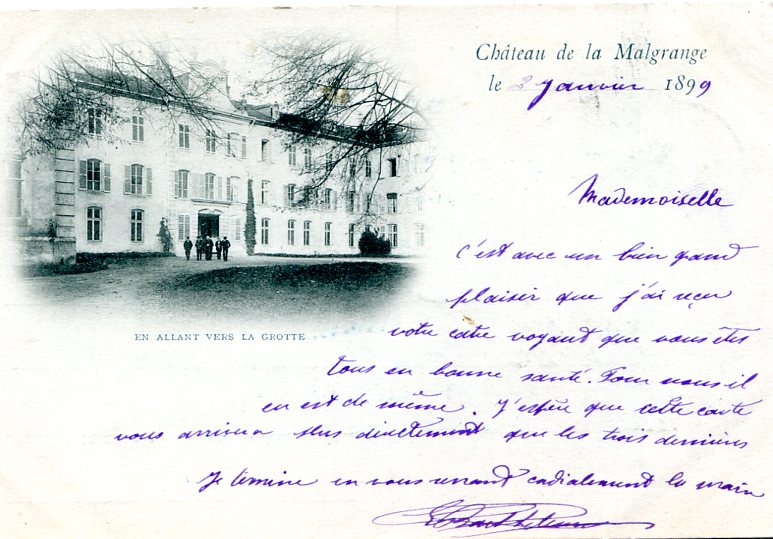 Château de la Malgrange
le 2 Janvier 1899
EN ALLANT VERS LA GROTTE
Mademoiselle
C'est avec un bien grand
plaisir que j'ai reçu
votre carte voyant que vous êtes
tous en bonne santé. Pour nous il
en est de même. J'espère que cette carte
vous arrivera plus directement que les trois dernières
Je termine en vous serrant cordialement la main